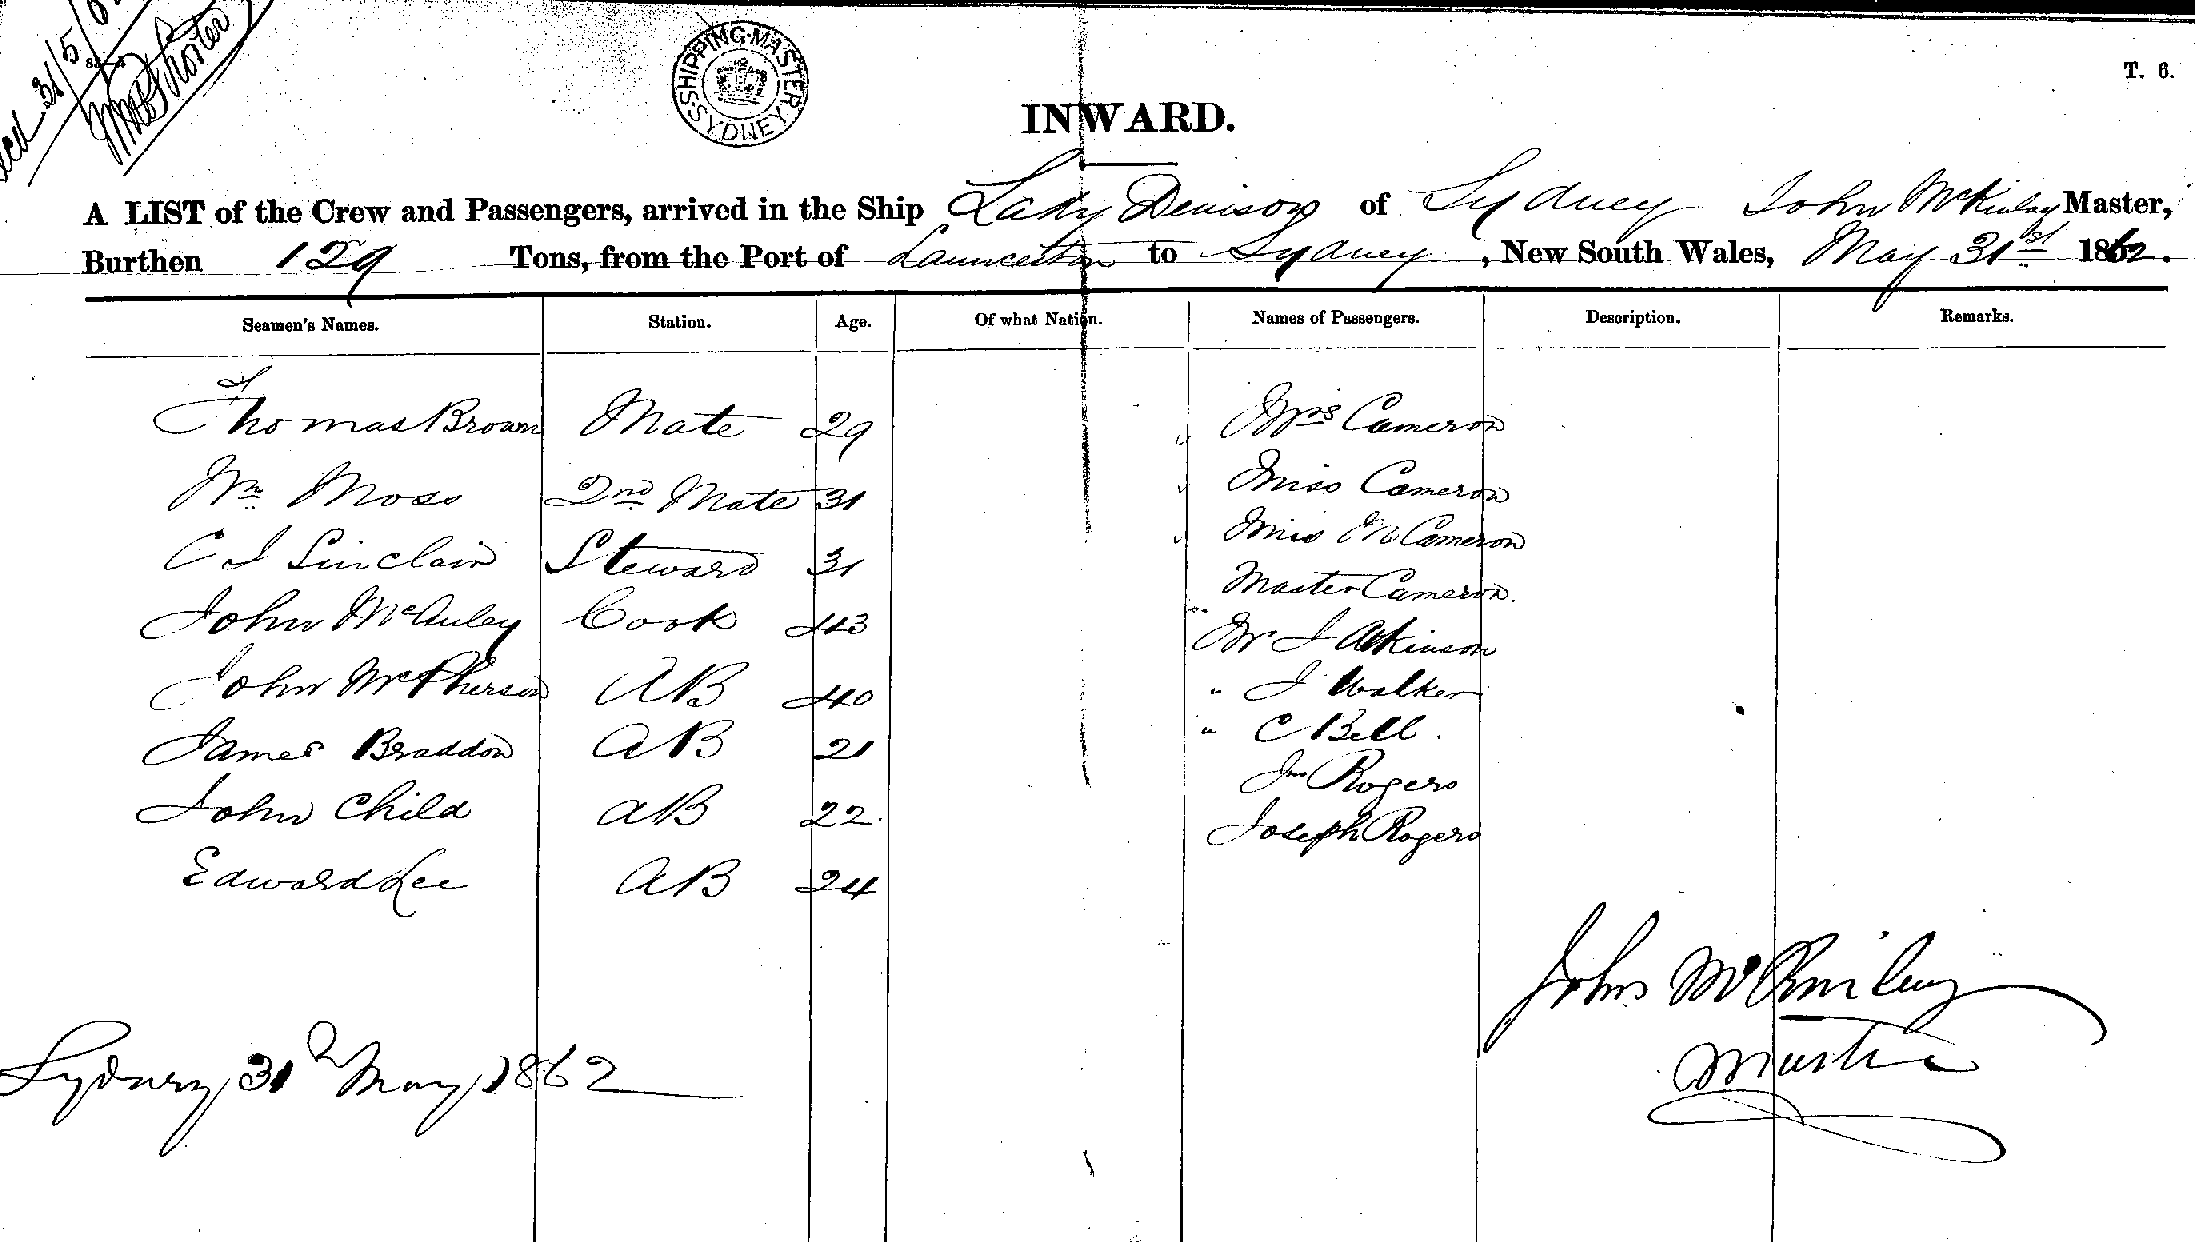 recd 31/5/62
SHIPPING MASTER SYDNEY
T. 6.
INWARD.
A LIST of the Crew and Passengers, arrived in the Ship Lady Denison of Sydney John McKinlay Master,
Burthen 129 Tons, from the Port of Launceston to Sydney, New South Wales, May 31st 1862.
Seamen's Names. Station. Age. Of what Nation. Names of Passengers. Description. Remarks.
Thomas Brown Mate 29 Mrs Cameron
Wm Moss 2nd Mate 31 Miss Cameron
C J Sinclair Steward 31 Miss M Cameron
John McAuley Cook 43 Master Cameron.
John McPherson AB 40 Mr J Atkinson
James Braddon AB 21 " J Walker
John Child AB 22 " C Bell.
Edward Lee AB 24 Jno Rogers
Joseph Rogers
John
Master
Sydney 31 May 1862